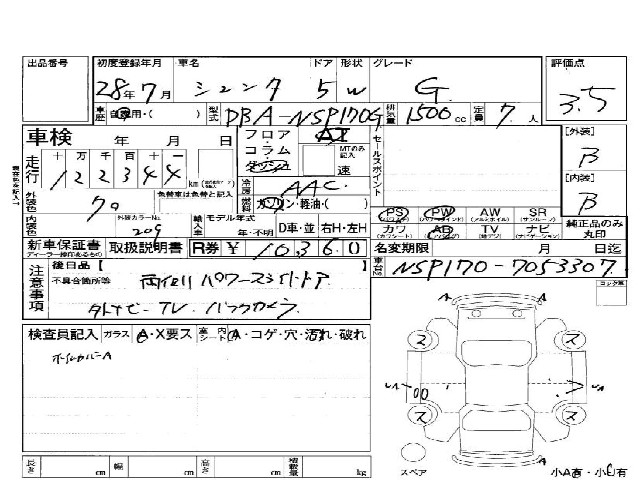 出品番号 初度登録年月 車名 ドア 形状 グレード 評価点
28年7月 シエンタ 5 W G 3.5
車歴 自家用・( ) 型式 DBA-NSP170G 排気量 1500cc 定員 7人
車検 年 月 日 フロア・コラム・ダッシュ AT MTのみ記入 速 セールスポイント
[外装] B
走行 十 万 千 百 十 一
122344 km
冷房 AAC
[内装] B
外装色 クロ 色替車は色替と記入 燃料 ガソリン・軽油・( )
内装色 外装カラーNo. 209 輸入車 モデル年式 年・不明 D車・並 右H・左H
PS PW AW SR
カワ AB TV ナビ 純正品のみ丸印
新車保証書 取扱説明書 R券 ¥ 10360 名変期限 月 日迄
後日品 [ ] 車台No. NSP170-7053307
注意事項 不具合箇所等 両側パワースライドドア
外ナビ-TV、バックカメラ
検査員記入 ガラス A・X要ス 室内シート A・コゲ・穴・汚れ・破れ
ス ス
UA UA
ス ス
A A
スペア 小A有・小U有
長さ cm 幅 cm 高さ cm 積載量 kg